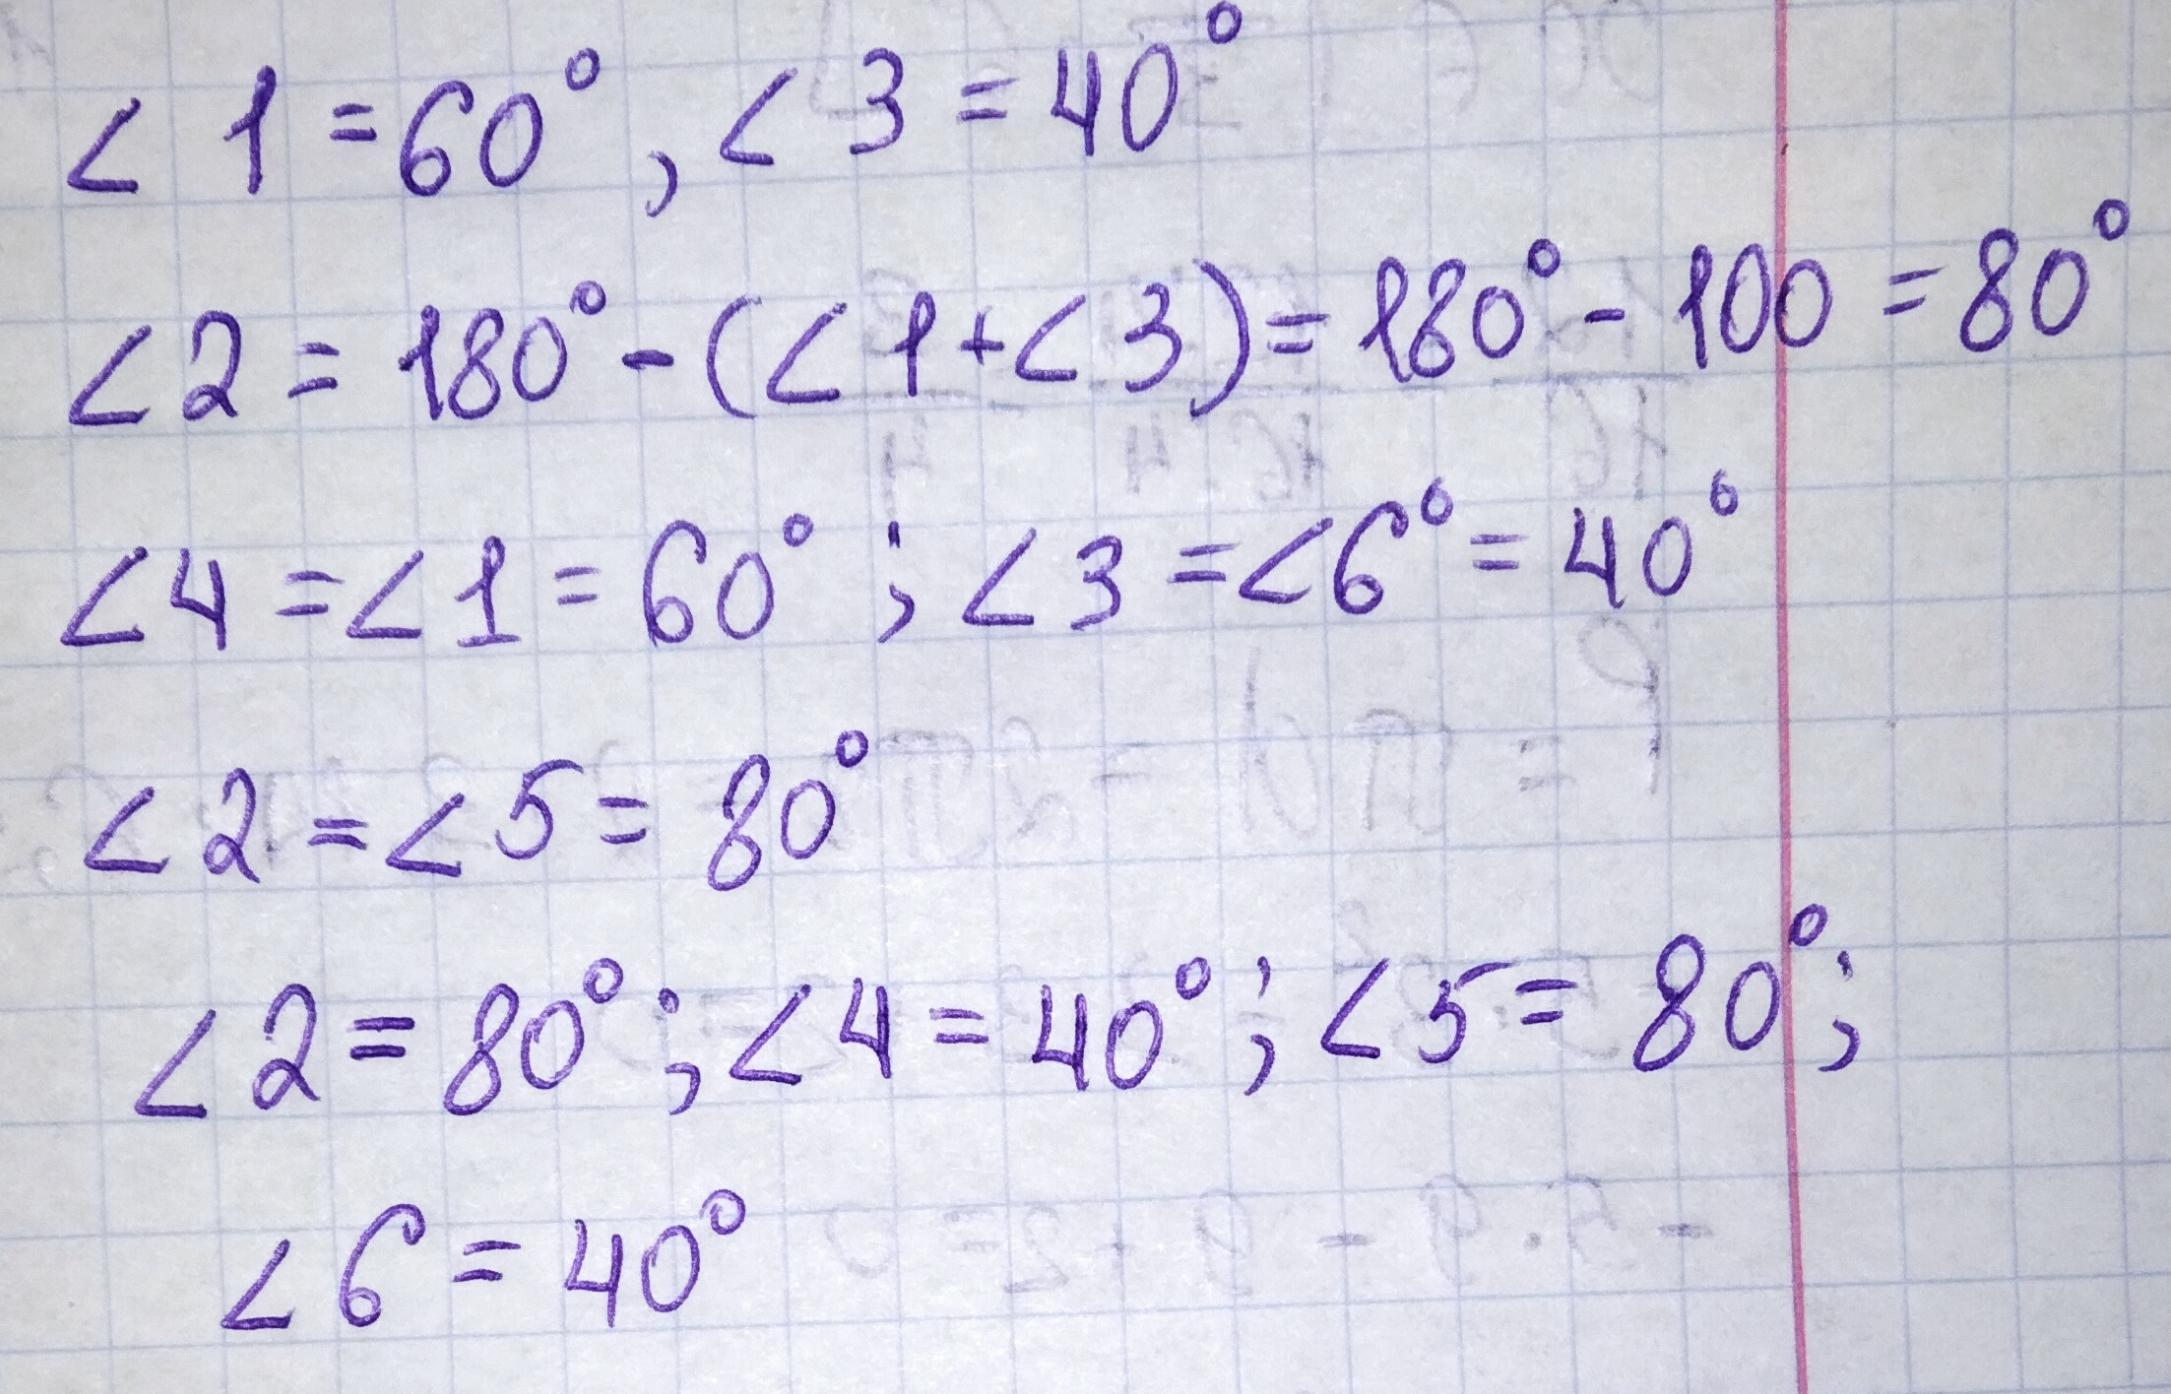 ∠1 = 60°, ∠3 = 40°
∠2 = 180° - (∠1 + ∠3) = 180° - 100 = 80°
∠4 = ∠1 = 60°; ∠3 = ∠6° = 40°
∠2 = ∠5 = 80°
∠2 = 80°; ∠4 = 40°; ∠5 = 80°;
∠6 = 40°